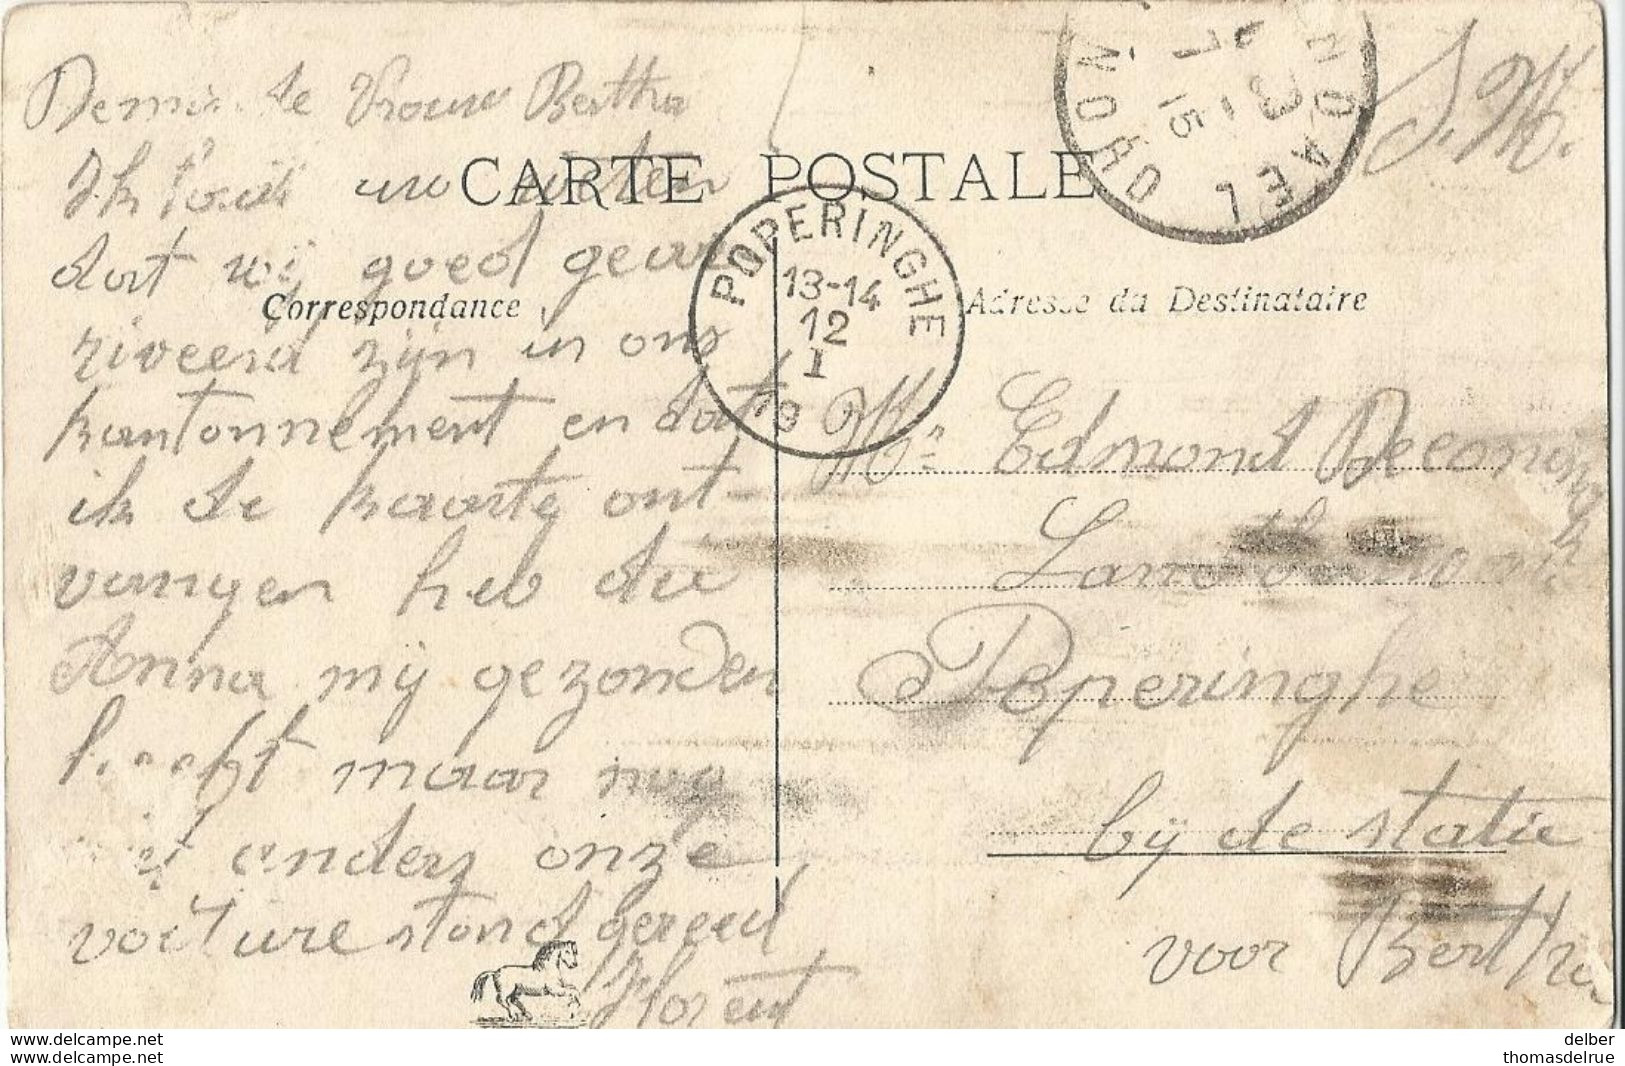 Beminde Vrouw Bertha
CARTE POSTALE
S.M.
Ik laat u weten
dat wij goed gear
Correspondance
Adresse du Destinataire
riveerd zijn in ons
kantonnement en dat
ik de kaarte ont-
vangen heb die
Anna mij gezonden
heeft maar nog
niet anders onze
voiture stond gereed
Florent
POPERINGHE
13-14
12
I
GHOAEL
NORD
7
3
15
Mr Edmond Deconinck
Poperinghe
bij de statie
voor Bertha
delber
delcampe.net
thomasdelrue